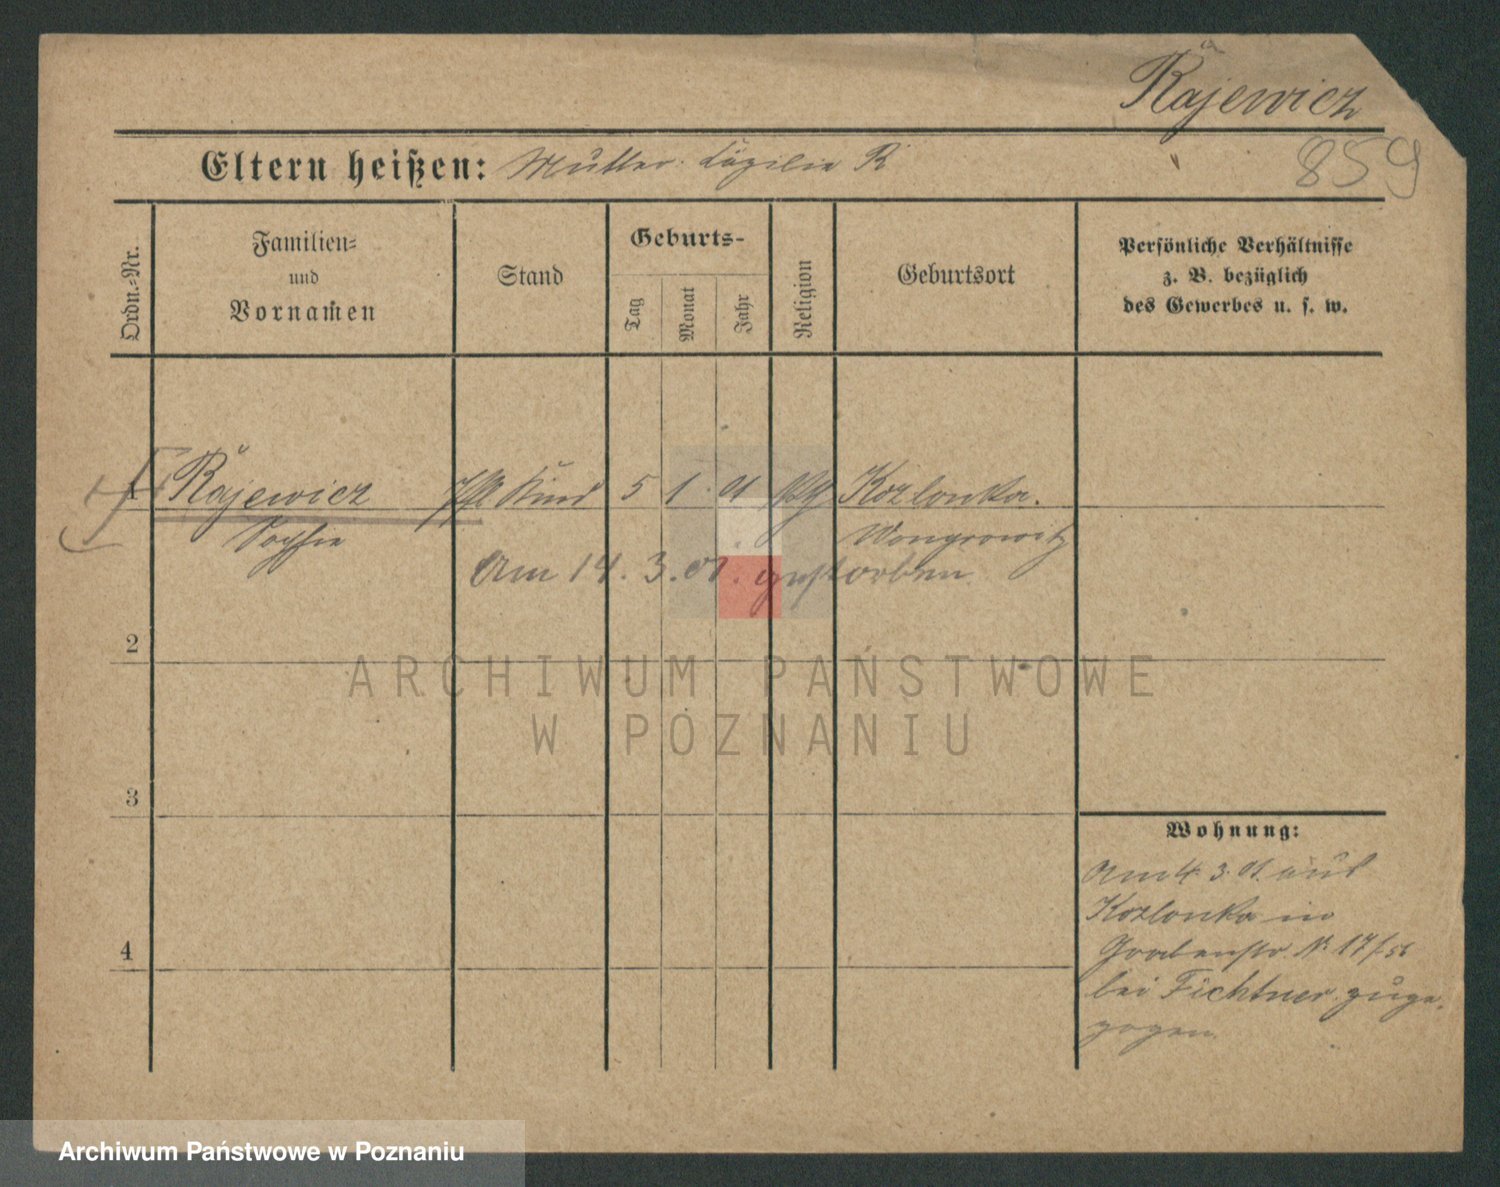 Rajewicz
859
Eltern heißen: Mutter: Cäzilie R
Ordn.-Nr.
Familien-
und
Vornamen
Stand
Geburts-
Tag
Monat
Jahr
Religion
Geburtsort
Persönliche Verhältnisse
z. B. bezüglich
des Gewerbes u. s. w.
1 Rajewicz Pfl Kind 5 1. 01 Kozlonka.
Sophie Wongrowitz
Am 14. 3. 01. gestorben.
2
ARCHIWUM PAŃSTWOWE
W POZNANIU
3
Wohnung:
Am 4. 3. 01. aus
Kozlonka in
4 Grabenstr. N. 17
bei Fichtner zuge-
zogen.
Archiwum Państwowe w Poznaniu